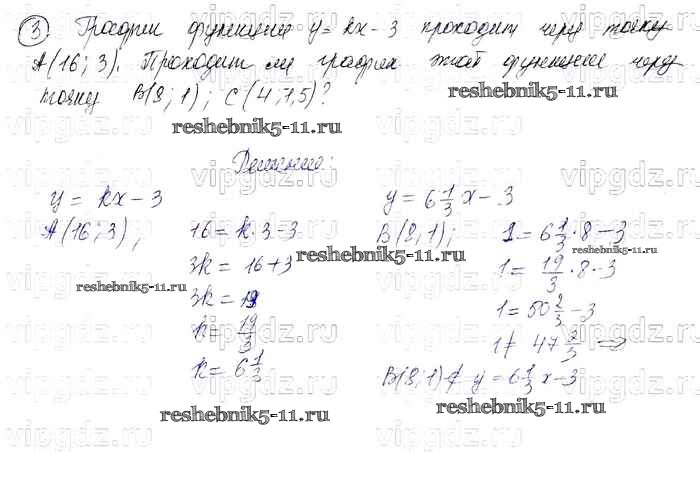 ③ График функции y = kx - 3 проходит через точку
A(16; 3). Проходит ли график этой функции через
точку B(8; 1); C(4; 7,5)?
reshebnik5-11.ru
reshebnik5-11.ru
Решение:
y = kx - 3
A(16; 3);
16 = k·3 - 3
3k = 16 + 3
3k = 19
k = 19/3
k = 6 1/3
reshebnik5-11.ru
reshebnik5-11.ru
y = 6 1/3 x - 3
B(8; 1);
1 = 6 1/3 · 8 - 3
1 = 19/3 · 8 - 3
1 = 50 2/3 - 3
1 ≠ 47 2/3 ⇒
B(8; 1) ∉ y = 6 1/3 x - 3
reshebnik5-11.ru
reshebnik5-11.ru
reshebnik5-11.ru
vipgdz.ru